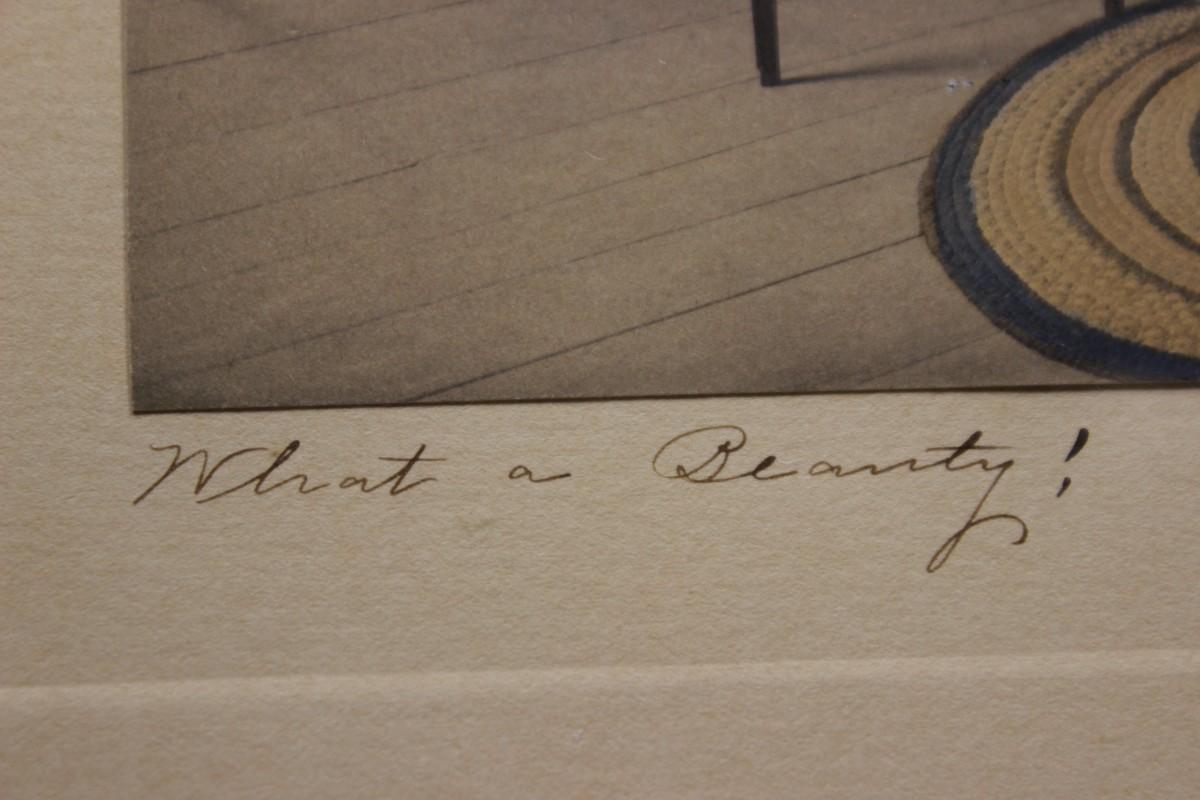 What a Beauty!